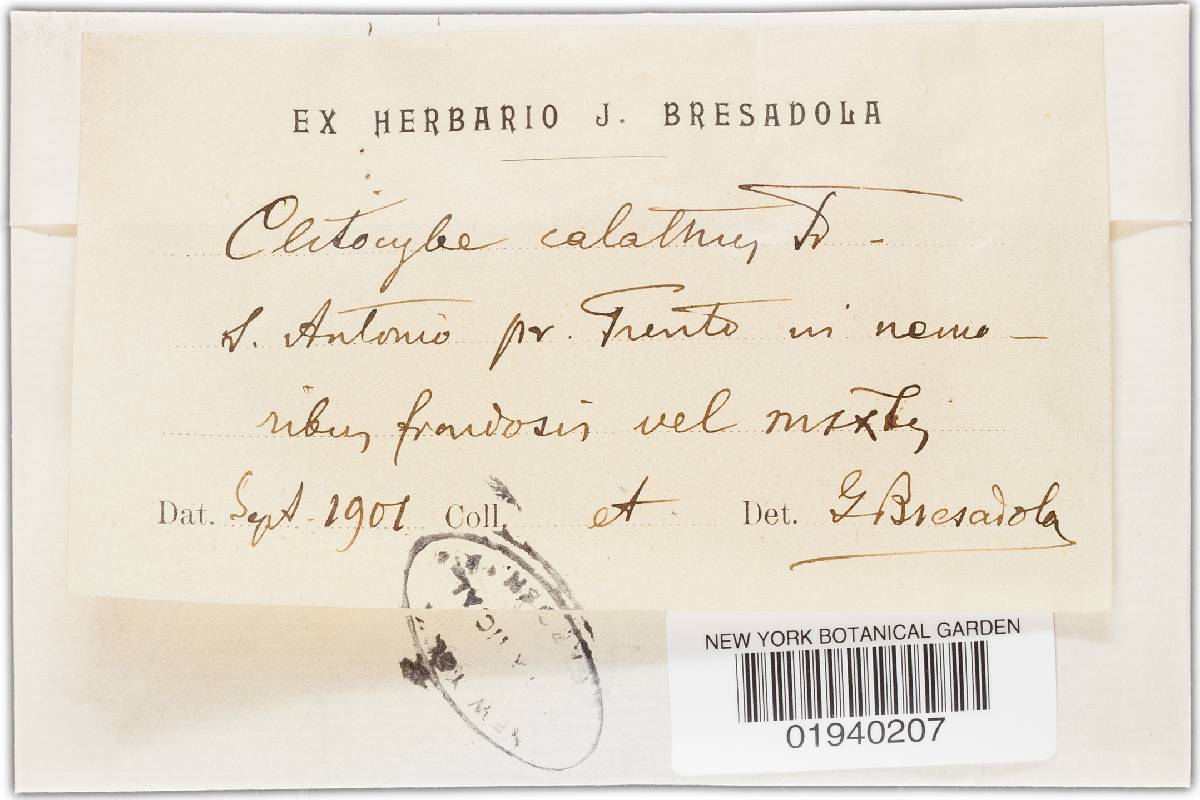 EX HERBARIO J. BRESADOLA
Clitocybe calathus Fr -
S. Antonio pr. Trento in nemo-
ribus frondosis vel mixtis
Dat. Sept. 1901 Coll. et Det. G Bresadola
NEW YORK BOTANICAL GARDEN
NEW YORK BOTANICAL GARDEN
01940207